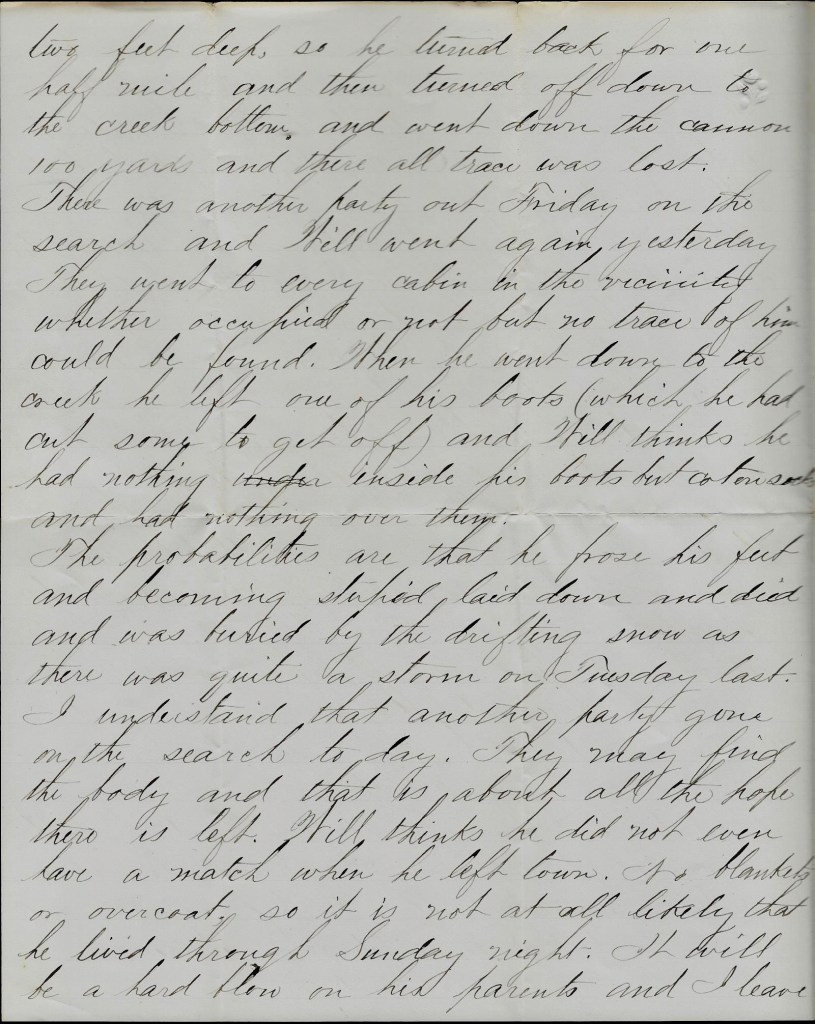 two feet deep, so he turned back for one
half mile and then turned off down to
the creek bottom, and went down the cannon
100 yards and there all trace was lost.
There was another party out Friday on the
search and Will went again yesterday
They went to every cabin in the vicinity
whether occupied or not but no trace of him
could be found. When he went down to the
creek he left one of his boots (which he had
cut some to get off) and Will thinks he
had nothing under inside his boots but coton socks
and had nothing over them.
The probabilities are that he frose his feet
and becoming stupid laid down and died
and was buried by the drifting snow as
there was quite a storm on Tuesday last.
I understand that another party gone
on the search to day. They may find
the body and that is about all the hope
there is left. Will thinks he did not even
have a match when he left town. No blankets
or overcoat, so it is not at all likely that
he lived through Sunday night. It will
be a hard blow on his parents and I leave